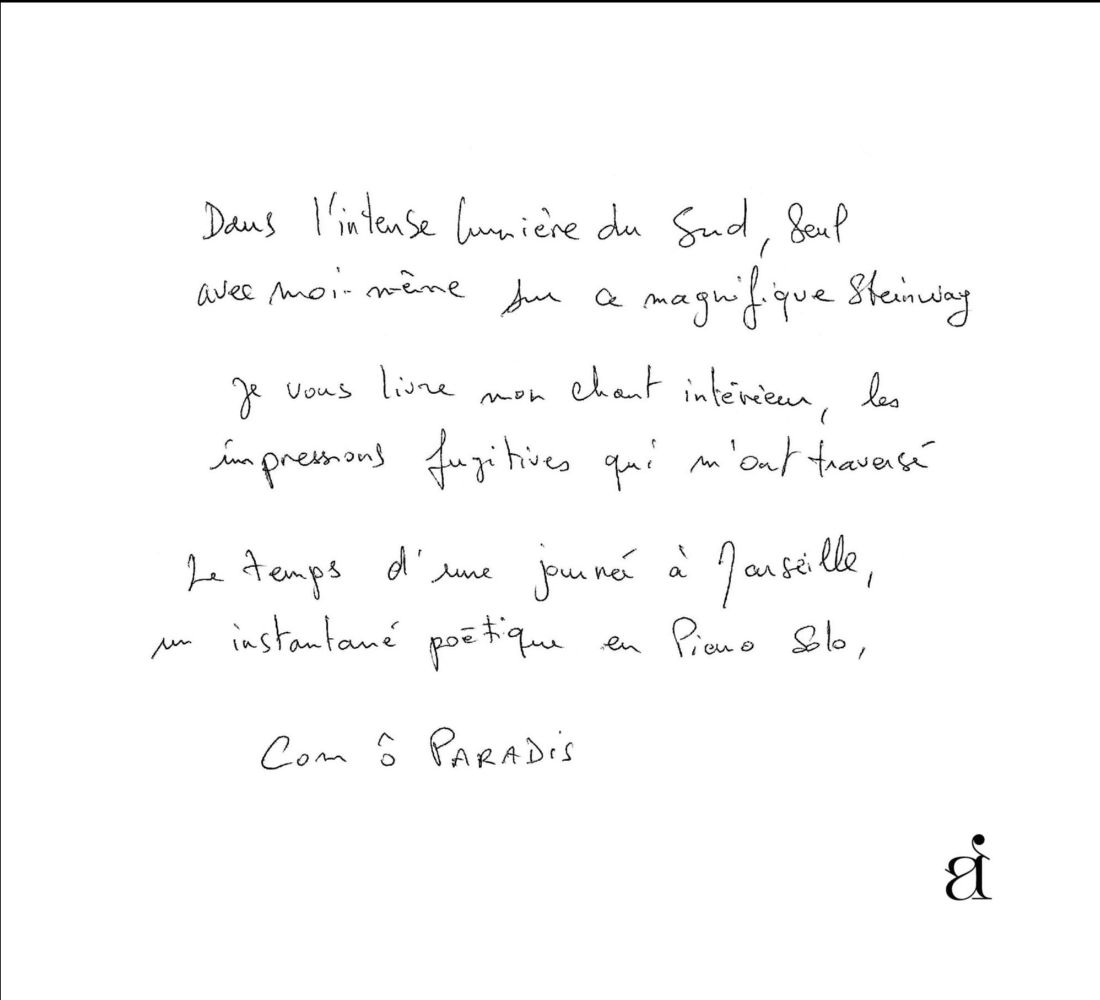 Dans l'intense lumière du Sud, Seul
avec moi-même sur ce magnifique Steinway
Je vous livre mon chant intérieur, les
impressions fugitives qui m'ont traversé
Le temps d'une journée à Marseille,
un instantané poëtique en Piano Solo,
Com ô PARADiS